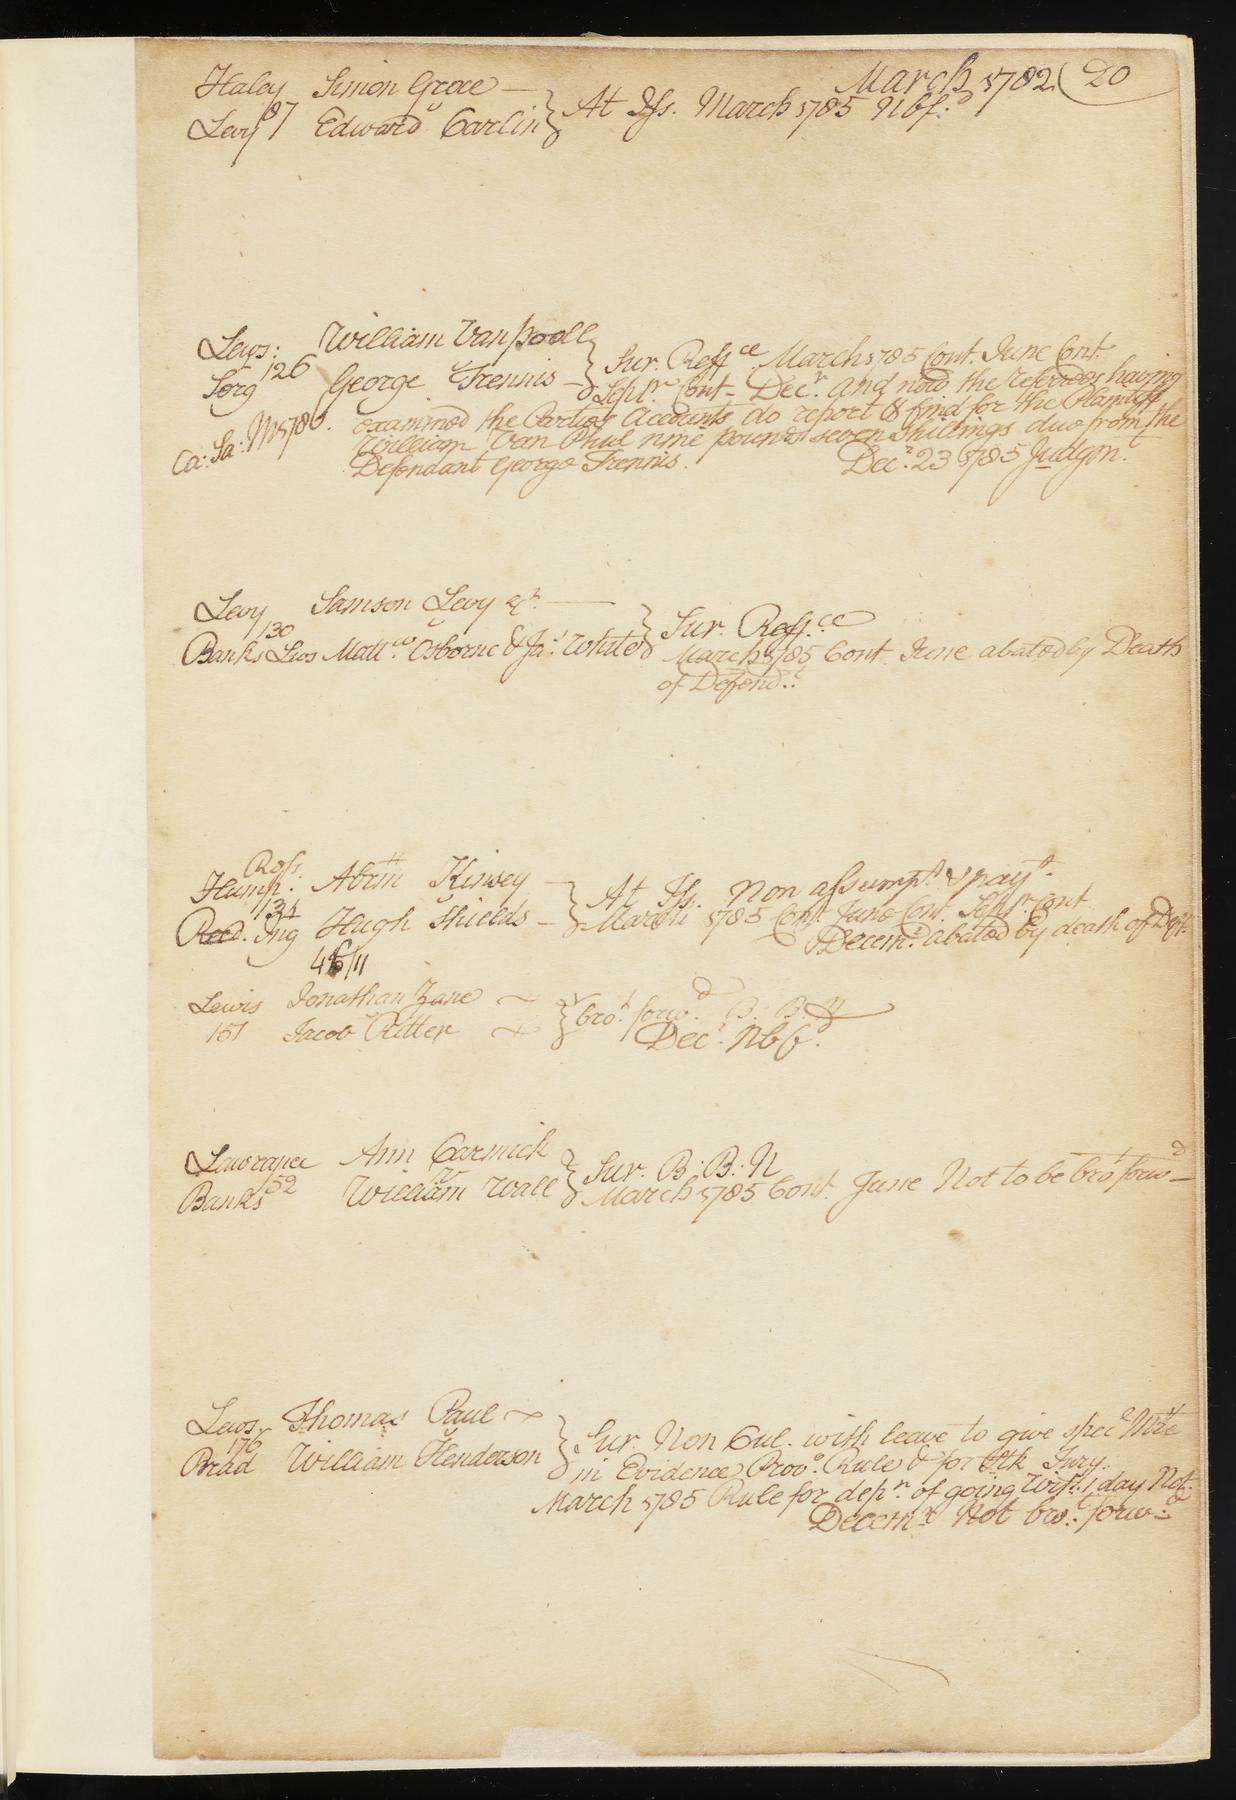 March 1782 (20
Haley Simon Groce —
Levy 87 Edward Carlin } At Iss. March 1785 Nbf.d
Lews: William Vanpooll
Serg 126 George Frennis — } Sur. Reff.ce March 1785 Cont. June Cont.
Sept.r Cont - Dec.r and now the referrees having
Ca: Sa: M 1786. examined the Parties Accounts do report & find for the Plaintiff
William Van Phul nine pounds seven shillings due from the
Defendant George Frennis. Dec.r 23 1785 Judgm.t
Levy Samson Levy
130
Banks Lws Matt.w Osborne & Ja.s White } Sur. Reff.ce
March 1785 Cont. June abated by Death
of Defend.t
Ross.
Hamp: Abrm Kinsey — } At Iss. Non assump.t & pay.t
134
Reed. Ing Hugh Shields — March 1785 Cont. June Cont. Sept.r Cont
Decem.r abated by death of Deft.
46/11
Lewis Jonathan Zane
151 Jacob Ritter } bro.t forw.d B. B. N
Dec.r Nbf.d
Lawrance Ann Carmick
152
Banks William Wall } Sur. B: B: N
March 1785 Cont. June Not to be bro.t forw.d
Lews. Thomas Paul
176
Brad William Henderson } Sur. Non Cul. with leave to give spec.l
in Evidence Prov.o Rule & for Jury.
March 1785 Rule for dep.n of going Wit.s 1 day Not.
Decem.r Not bro.t forw.d